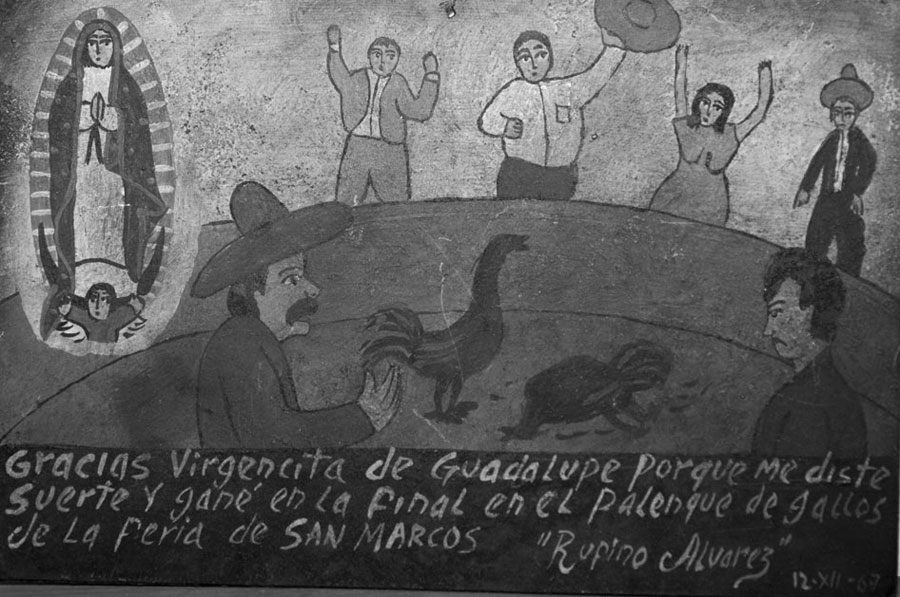 Gracias Virgencita de Guadalupe porque me diste
suerte y gané en la final en el palenque de gallos
de la feria de SAN MARCOS "Rufino Alvarez"
12-XII-67